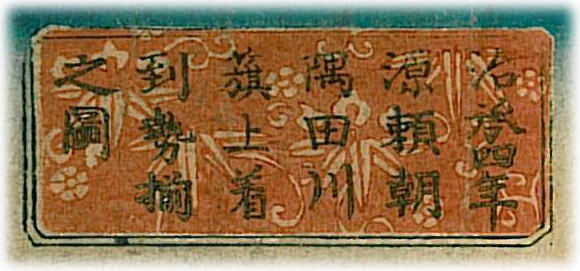 治承四年
源頼朝
隅田川
旗上着
到勢揃
之圖